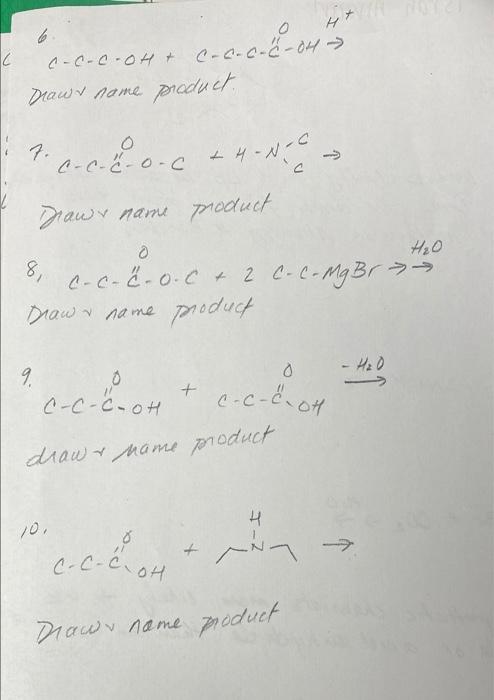 6.
O H+
C-C-C-OH + C-C-C-C-OH →
Draw & name product.
7.
O
C-C-C-O-C + H-N-C →
C
Draw & name product
8,
O H2O
C-C-C-O-C + 2 C-C-MgBr →→
Draw & name product
9.
O O -H2O
C-C-C-OH + C-C-C-OH →
draw & name product
10.
O H
C-C-C-OH + N →
Draw & name product